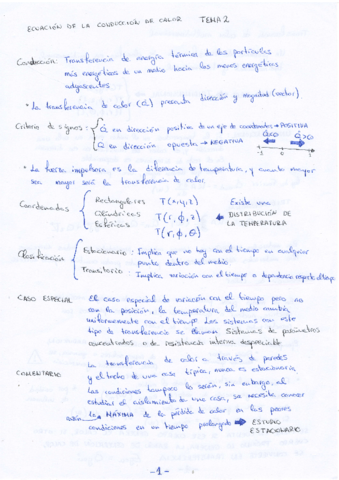 ECUACIÓN DE LA CONDUCCIÓN DE CALOR TEMA 2
Conducción: Transferencia de energía térmica de las partículas
más energéticas de un medio hacia las menos energéticas
adyacentes
* La transferencia de calor (Q) presenta dirección y magnitud (vector).
Criterio de signos: Q en dirección positiva de un eje de coordenadas → POSITIVA
Q en dirección opuesta → NEGATIVA
Q<0 Q>0
-1 0 1
* La fuerza impulsora es la diferencia de temperatura, y cuanto mayor
sea mayor será la transferencia de calor.
Coordenadas
Rectangulares T(x,y,z)
Cilíndricas T(r,φ,z)
Esféricas T(r,φ,θ)
Existe una
DISTRIBUCIÓN DE
LA TEMPERATURA
Clasificación
Estacionario: Implica que no hay con el tiempo en cualquier
punto dentro del medio
Transitorio: Implica variación con el tiempo o dependencia respecto al tiempo
CASO ESPECIAL El caso especial de variación con el tiempo pero no
con la posición, la temperatura del medio cambia
uniformemente con el tiempo. Los sistemas con este
tipo de transferencia se llaman Sistemas de parámetros
concentrados o de resistencia interna despreciable
COMENTARIO La transferencia de calor a través de paredes
y el techo de una casa típica, nunca es estacionaria
Las condiciones tampoco lo serán, sin embargo, al
estudiar el aislamiento de una casa, se necesita conocer
la MÁXIMA de la pérdida de calor en las peores
condiciones en un tiempo prolongado → ESTUDIO
ESTACIONARIO
-1-